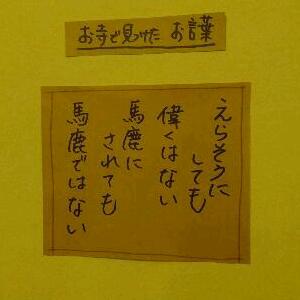 お寺で見つけた お言葉
えらそうに
しても
偉くはない
馬鹿に
されても
馬鹿ではない